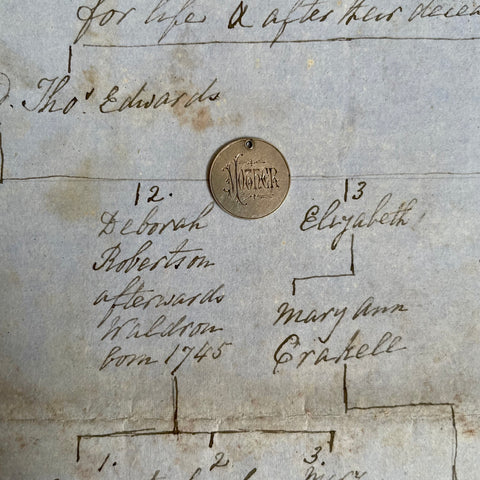 for life & after their decea
Tho.s Edwards
Mother
12.
Deborah
Robertson
afterwards
Waldron
born 1745
13
Elizabeth
Mary Ann
Crakell
1. 2 3.
Mary